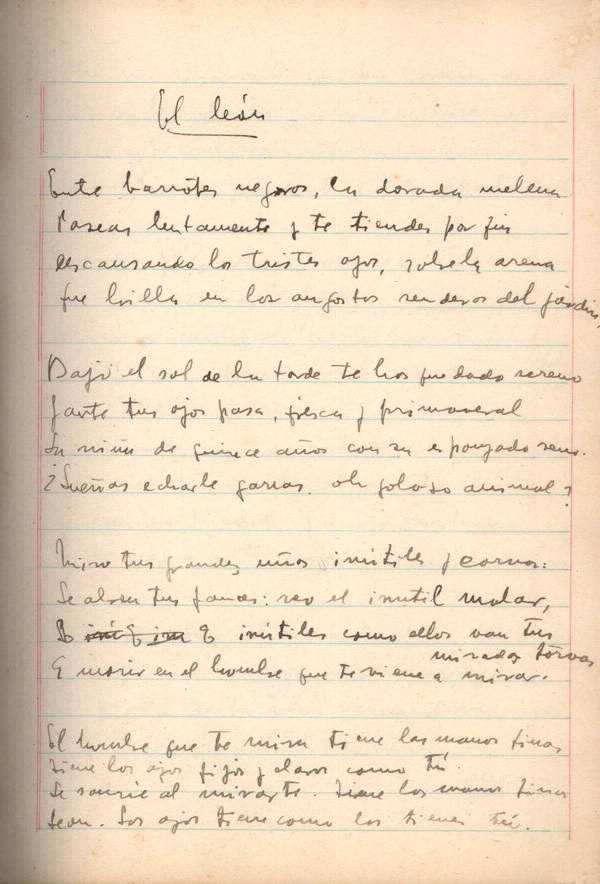 El león
Entre barrotes negros, la dorada melena
Paseas lentamente y te tiendes por fin
Descansando los tristes ojos, sobre la arena
Que brilla en los angostos senderos del jardín,
Bajo el sol de la tarde te has quedado sereno
Y ante tus ojos pasa, fresca y primaveral
La niña de quince años con su esponjado seno.
¿Sueñas echarle garras oh goloso animal?
Miro tus grandes uñas inútiles y corvas:
Se abren tus fauces: veo el inútil molar,
E inútiles como ellos van tus
miradas torvas
A morir en el hombre que te viene a mirar.
El hombre que te mira tiene las manos finas
Tiene los ojos fijos y claros como tú.
Se sonríe al mirarte. Tiene las manos finas
León. Los ojos tiene como los tienes tú.